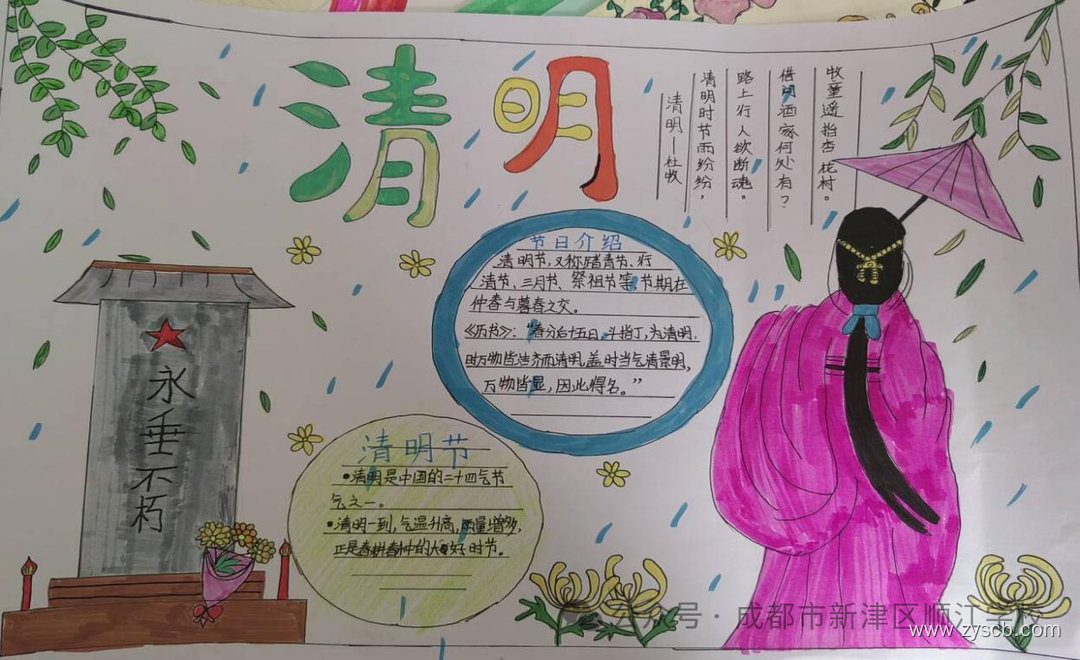 清明
清明——杜牧
清明时节雨纷纷，
路上行人欲断魂。
借问酒家何处有？
牧童遥指杏花村。
节日介绍
清明节，又称踏青节、行
清节、三月节、祭祖节等，节期在
仲春与暮春之交。
《历书》：“春分后十五日，斗指丁，为清明，
时万物皆洁齐而清明，盖时当气清景明，
万物皆显，因此得名。”
永垂不朽
清明节
•清明是中国的二十四气节
气之一。
•清明一到，气温升高，雨量增多，
正是春耕春种的大好时节。
公众号·成都市新津区顺江学校
www.zyscb.com